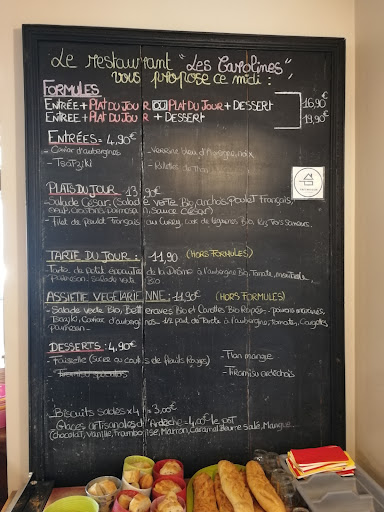 Le restaurant "Les Carolines",
vous propose ce midi :
FORMULES
ENTRÉE + PLAT DU JOUR OU PLAT DU JOUR + DESSERT 16,90€
ENTREE + PLAT DU JOUR + DESSERT 19,90€
ENTRÉES = 4,90€
- Caviar d'aubergines - Verrine bleu d'Auvergne, noix
- Tzatziki - Rillettes de
PLATS DU JOUR 13,90€
- Salade César : (Salade verte Bio, anchois, Poulet Français,
oeuf, croûtons, parmesan, Sauce César)
- Filet de Poulet Français au Curry, de légumes Bio, Riz Trois Saveurs.
TARTE DU JOUR : 11,90 (HORS FORMULES)
- Tarte de petit épeautre de la Drôme à l'aubergine Bio, Tomate,
parmesan - Salade verte Bio
ASSIETTE VEGETARIENNE : 11,90€ (HORS FORMULES)
- Salade verte Bio, Betteraves Bio et Carottes Bio Râpées - poivrons marinés,
Tzaziki, Caviar d'aubergines - 1/2 part de Tarte à l'aubergine, Tomate, Courgettes
parmesan -
DESSERTS : 4,90€
- Faisselle (sucre ou coulis de fruits Rouges) - Flan mangue
- Tiramisu - Tiramisu ardéchois
- Biscuits sablés x4 = 3,00€
- Glaces artisanales d'Ardèche = 4,00€ le pot
(chocolat, Vanille, Framboise, Marron, Caramel Beurre salé, Mangue